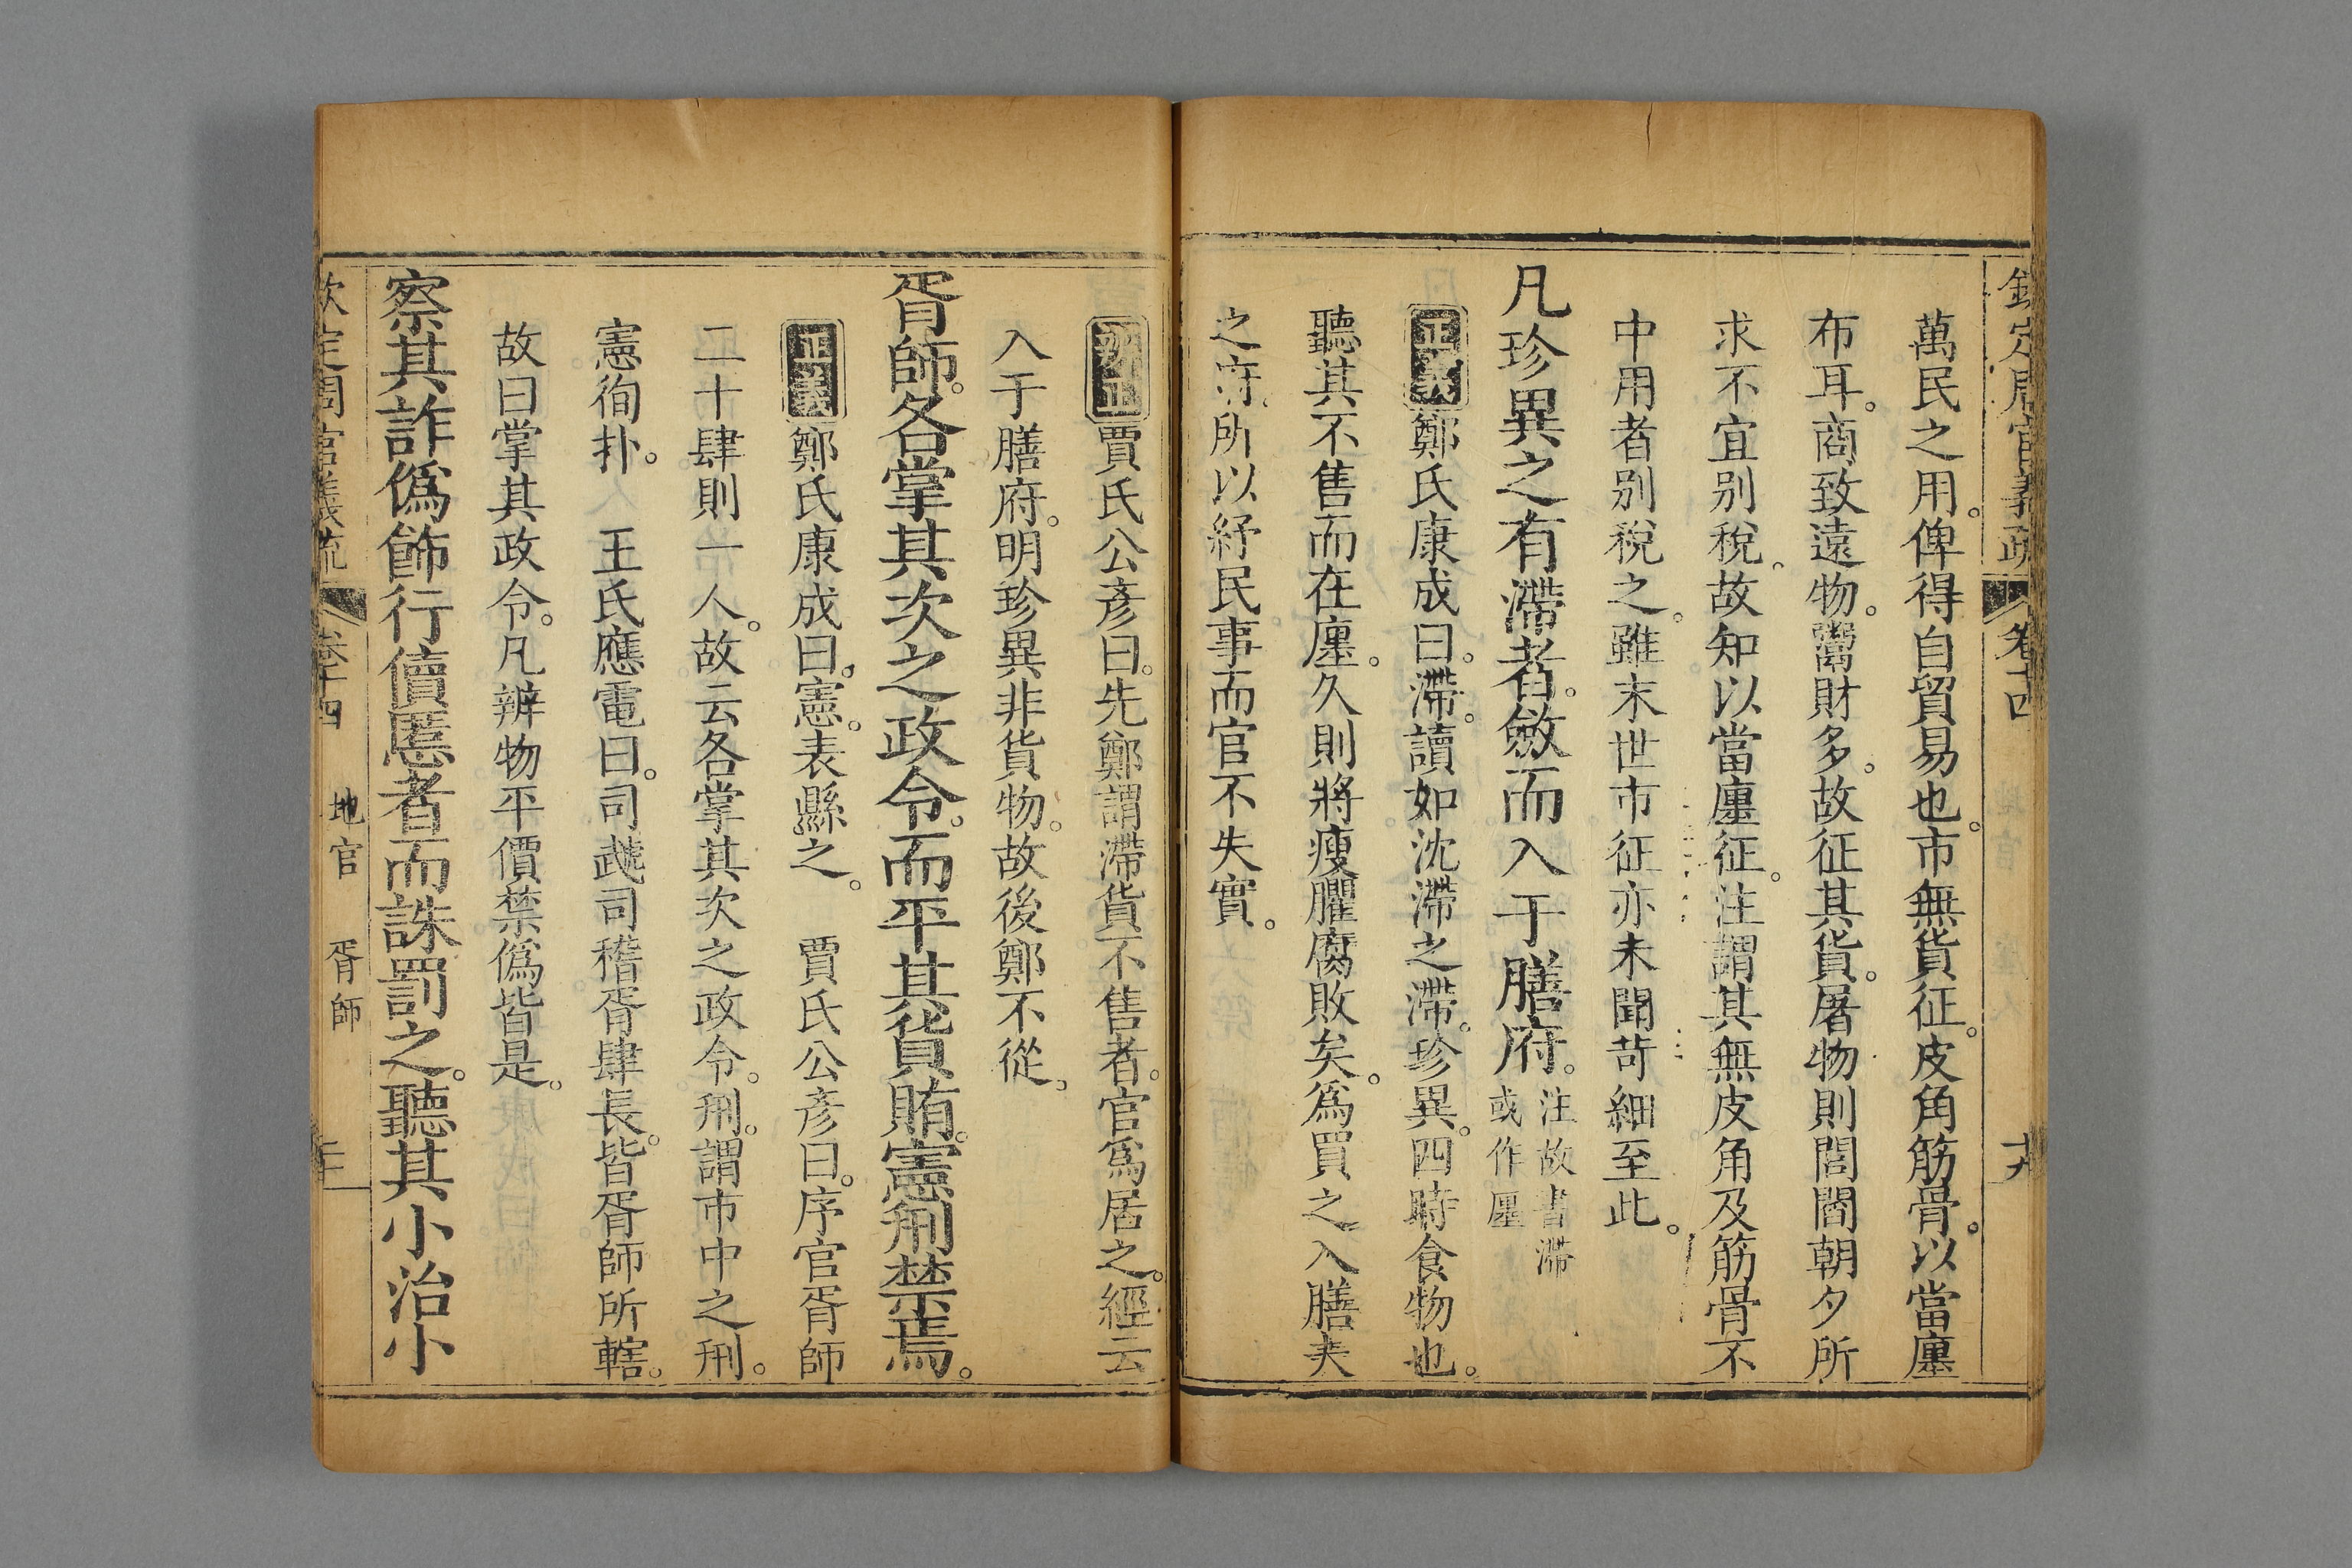 欽定周官義疏 卷十四 十九
萬民之用。俾得自貿易也。市無貨征。皮角筋骨。以當廛
布耳。商致遠物。鬻財多。故征其貨。屠物則閭閻朝夕所
求。不宜別稅。故知以當廛征。注謂其無皮角及筋骨不
中用者別稅之。雖末世市征亦未聞苛細至此。
凡珍異之有滯者。斂而入于膳府。注故書滯
或作廛
正義鄭氏康成曰。滯。讀如沈滯之滯。珍異。四時食物也。
聽其不售而在廛。久則將瘦臞腐敗矣。爲買之。入膳夫
之府。所以紓民事而官不失實。
辨正賈氏公彥曰。先鄭謂滯貨不售者。官爲居之。經云
入于膳府。明珍異非貨物。故後鄭不從。
胥師。各掌其次之政令。而平其貨賄。憲刑禁焉。
正義鄭氏康成曰。憲。表縣之。 賈氏公彥曰。序官胥師
二十肆則一人。故云各掌其次之政令。刑。謂市中之刑。
憲徇扑。 王氏應電曰。司虣司稽胥肆長。皆胥師所轄。
故曰掌其政令。凡辨物平價禁僞皆是。
察其詐僞飾行儥慝者而誅罰之。聽其小治小
欽定周官義疏 卷十四 地官 胥師